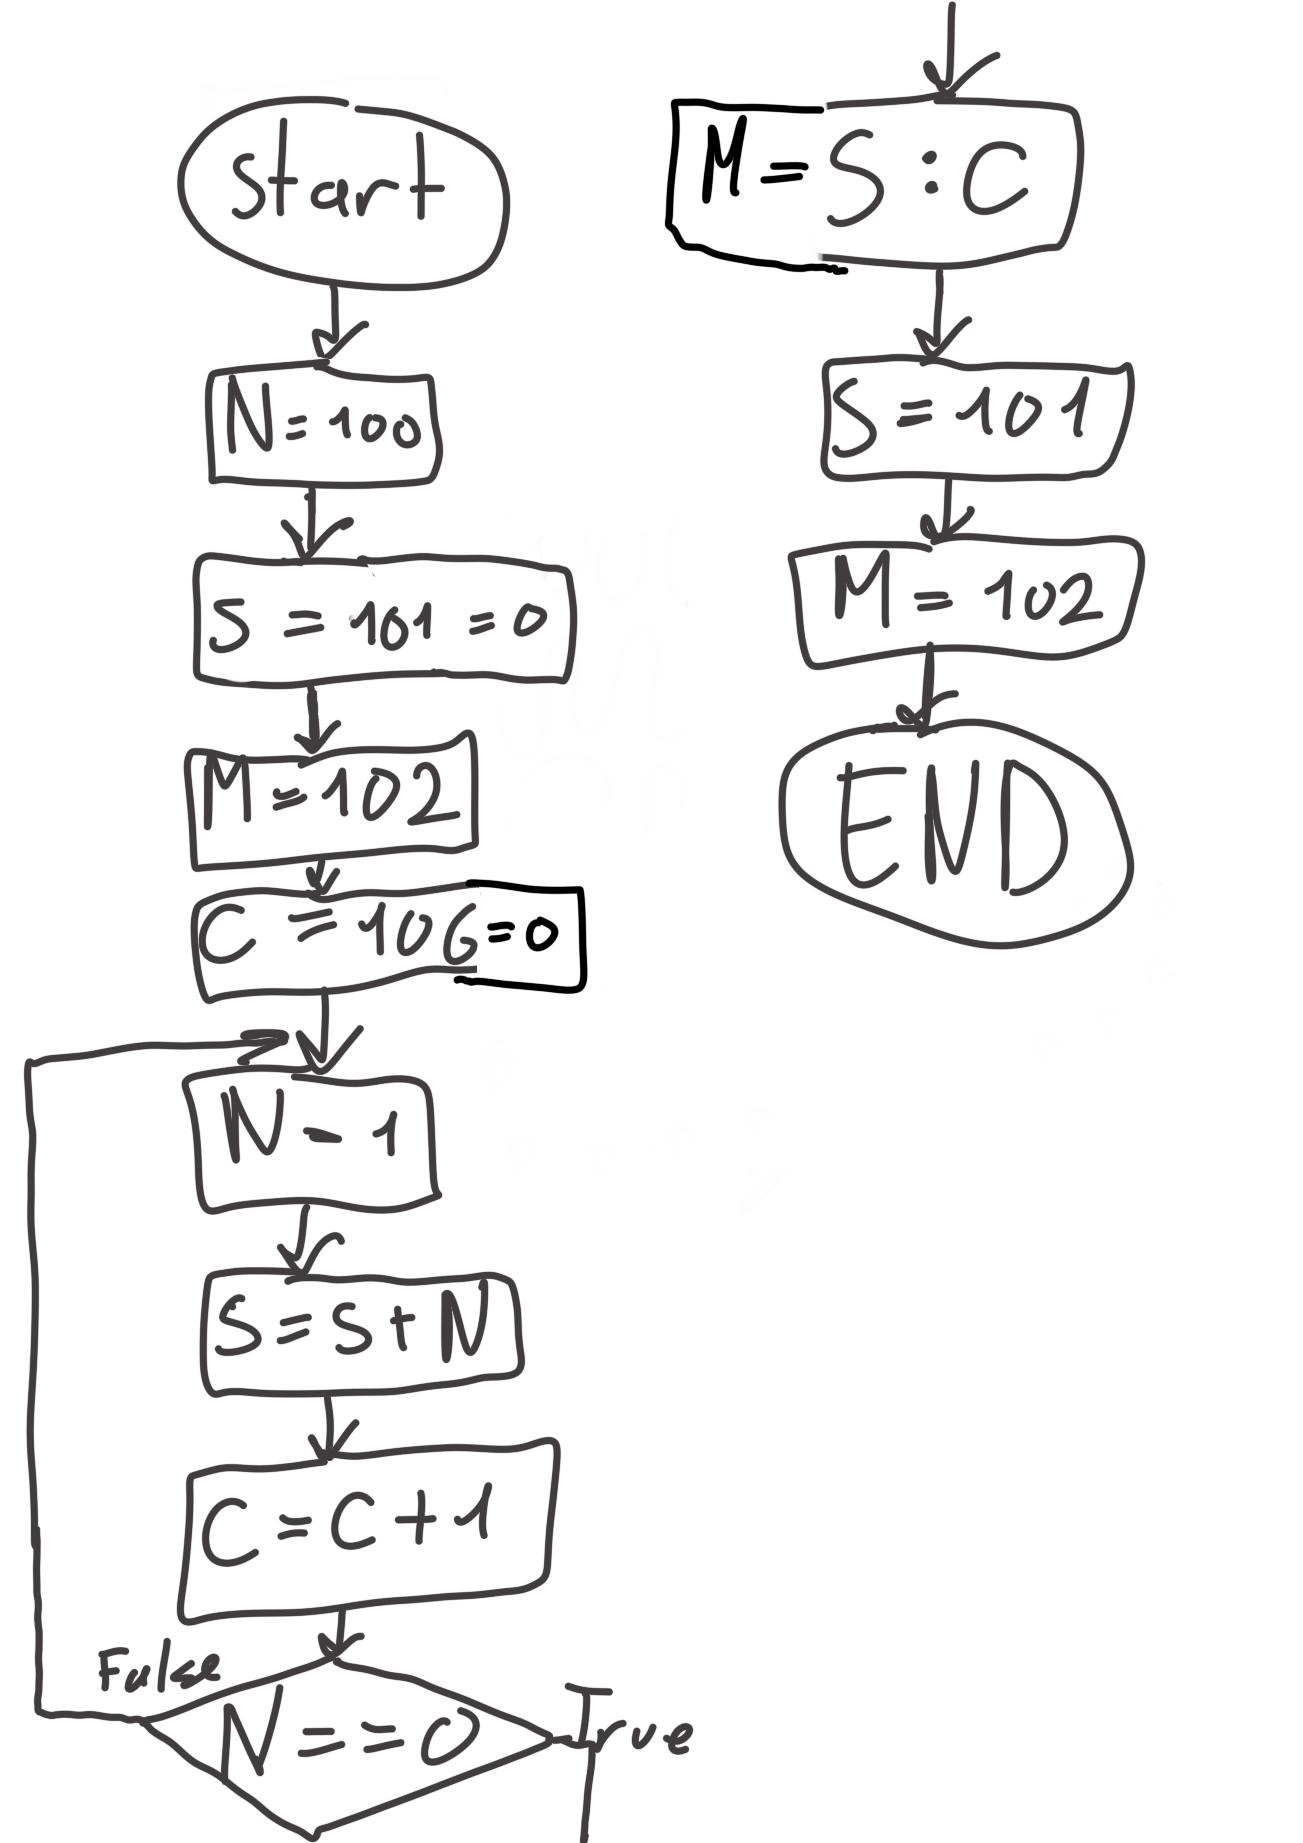 start
N=100
S = 101 = 0
M = 102
C = 106 = 0
N - 1
S = S + N
C = C + 1
False
N == 0
True
M = S : C
S = 101
M = 102
END